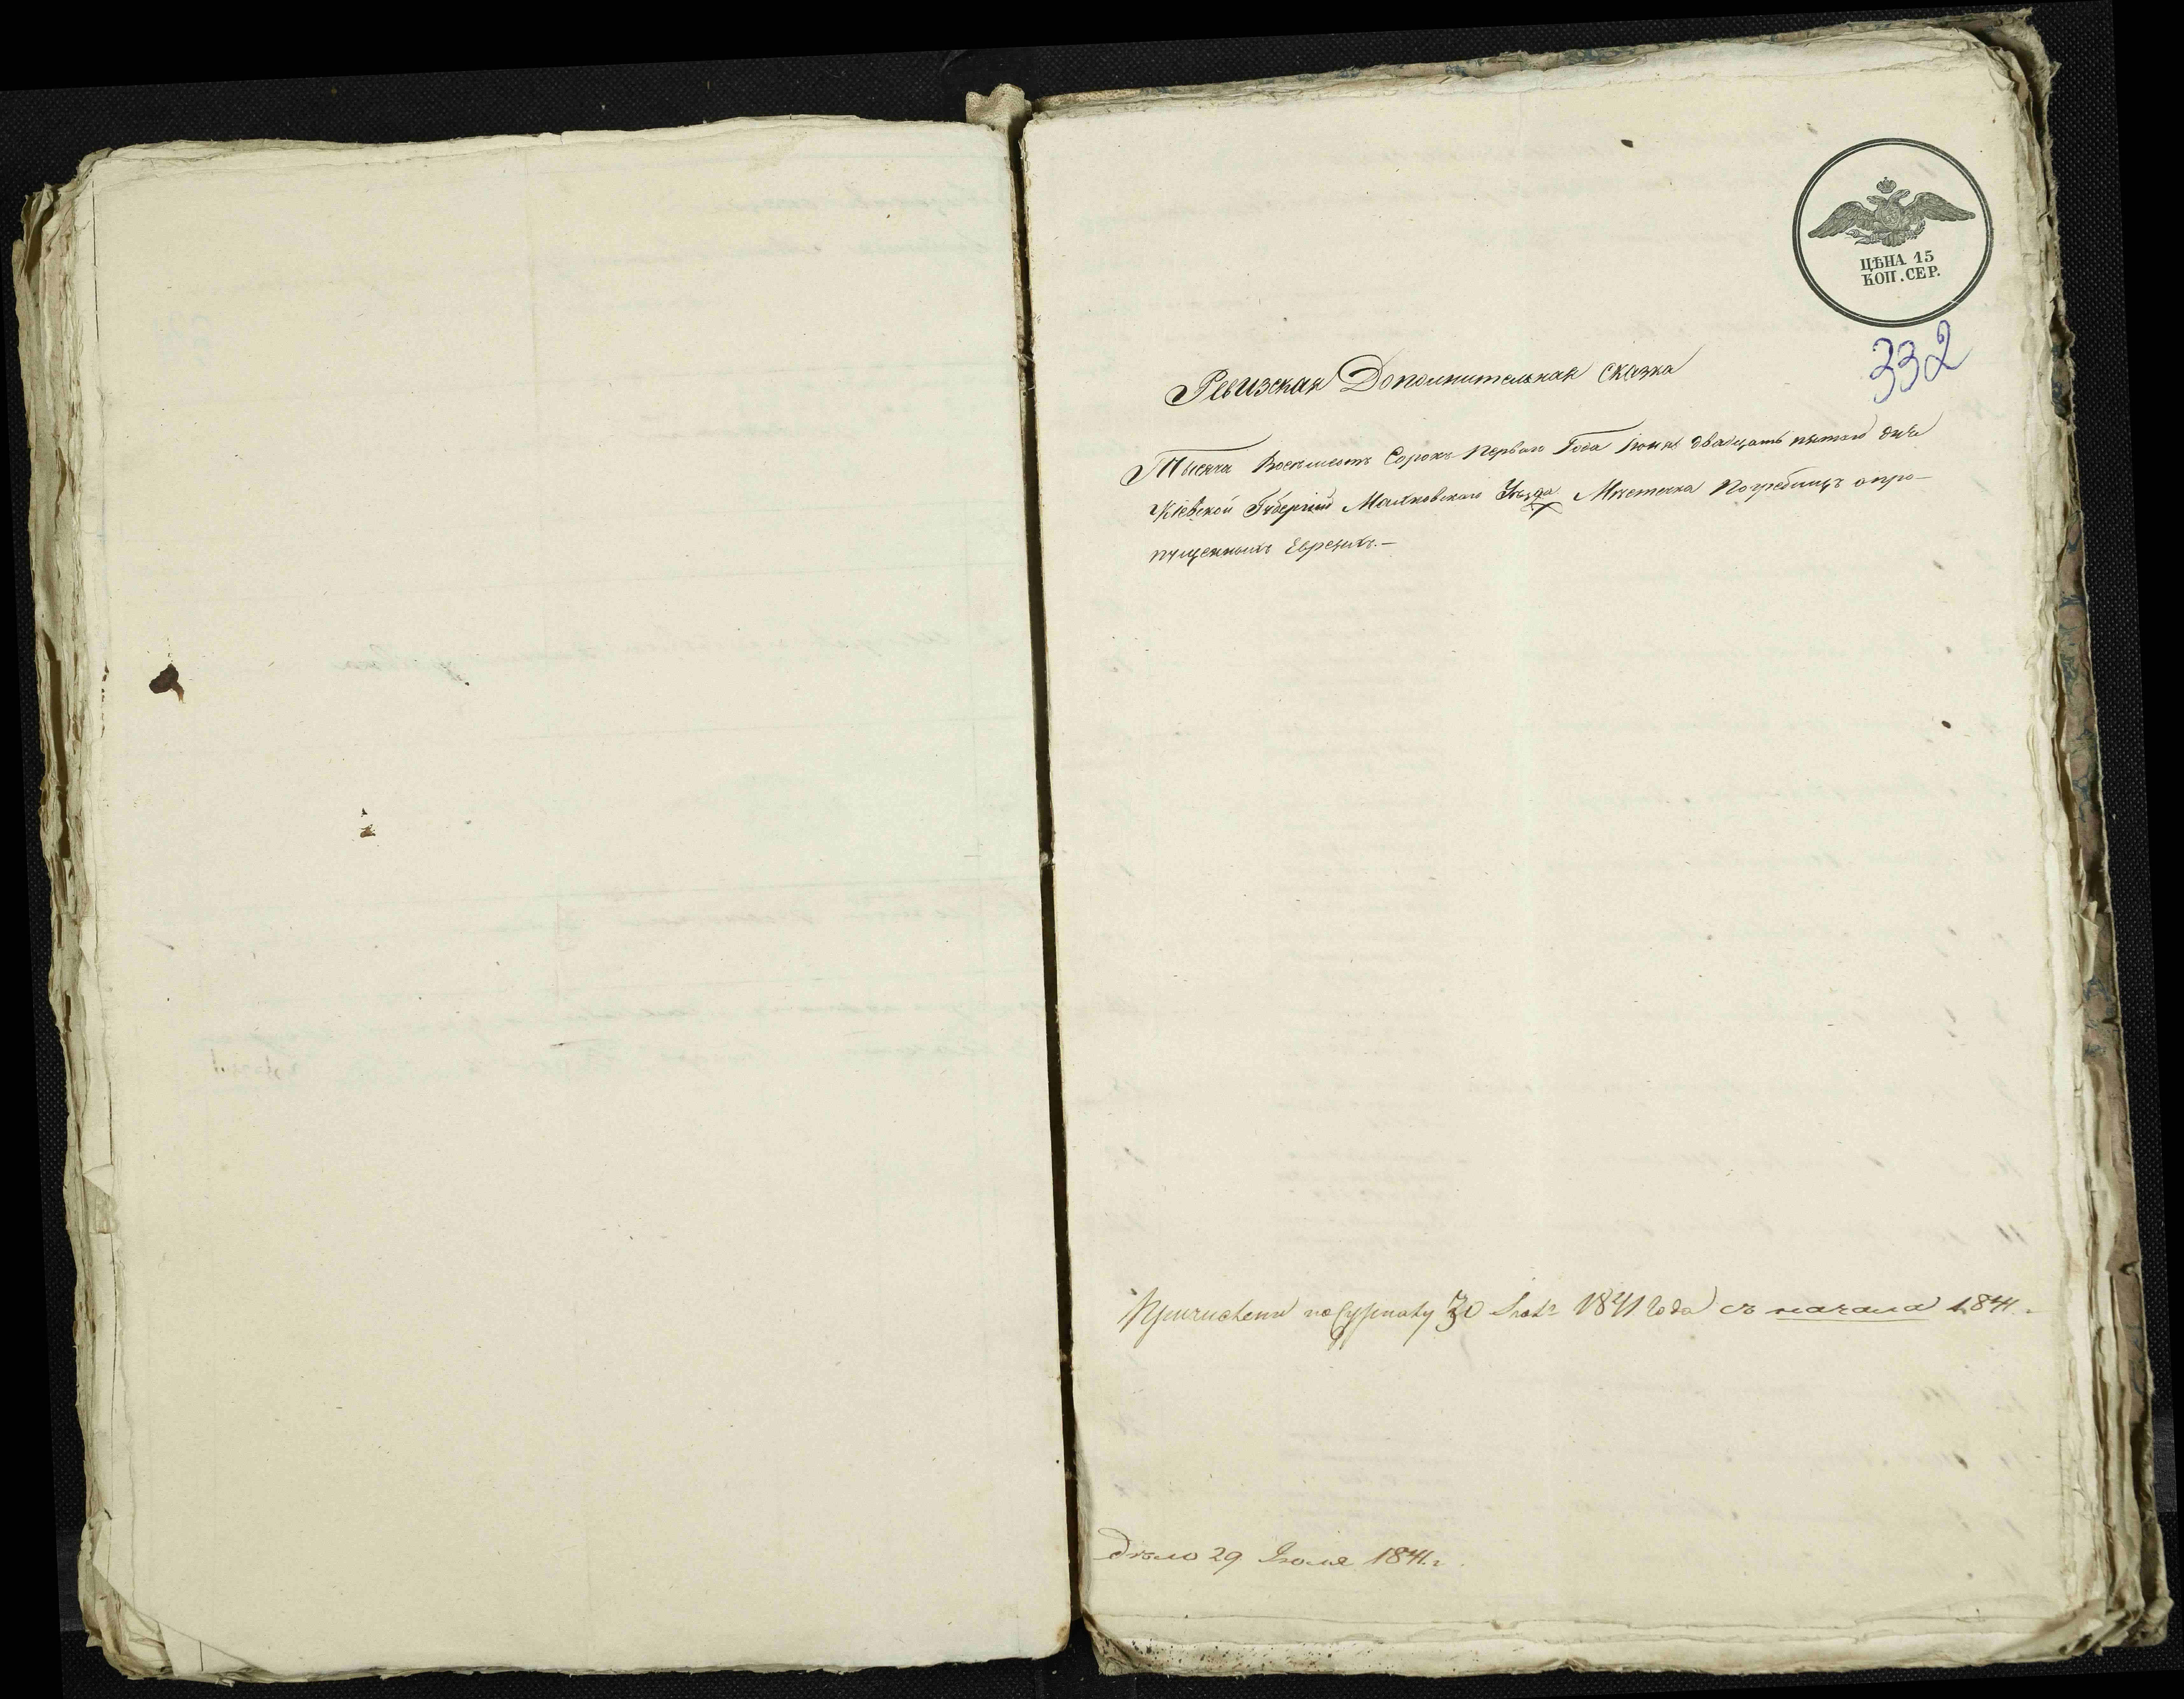 ЦѢНА 15
КОП. СЕР.
332
Ревизская Дополнительная сказка
Тысяча Восемьсотъ Сорокъ Перваго Года Іюня двадцать пятаго дня
Кіевской Губерніи Махновскаго Уѣзда Мѣстечка Погребищъ опро-
пущенныхъ Евреяхъ.—
Причислены по журналу 30 1841 года съ начала 1841.
Дѣло 29 Іюля 1841 г.